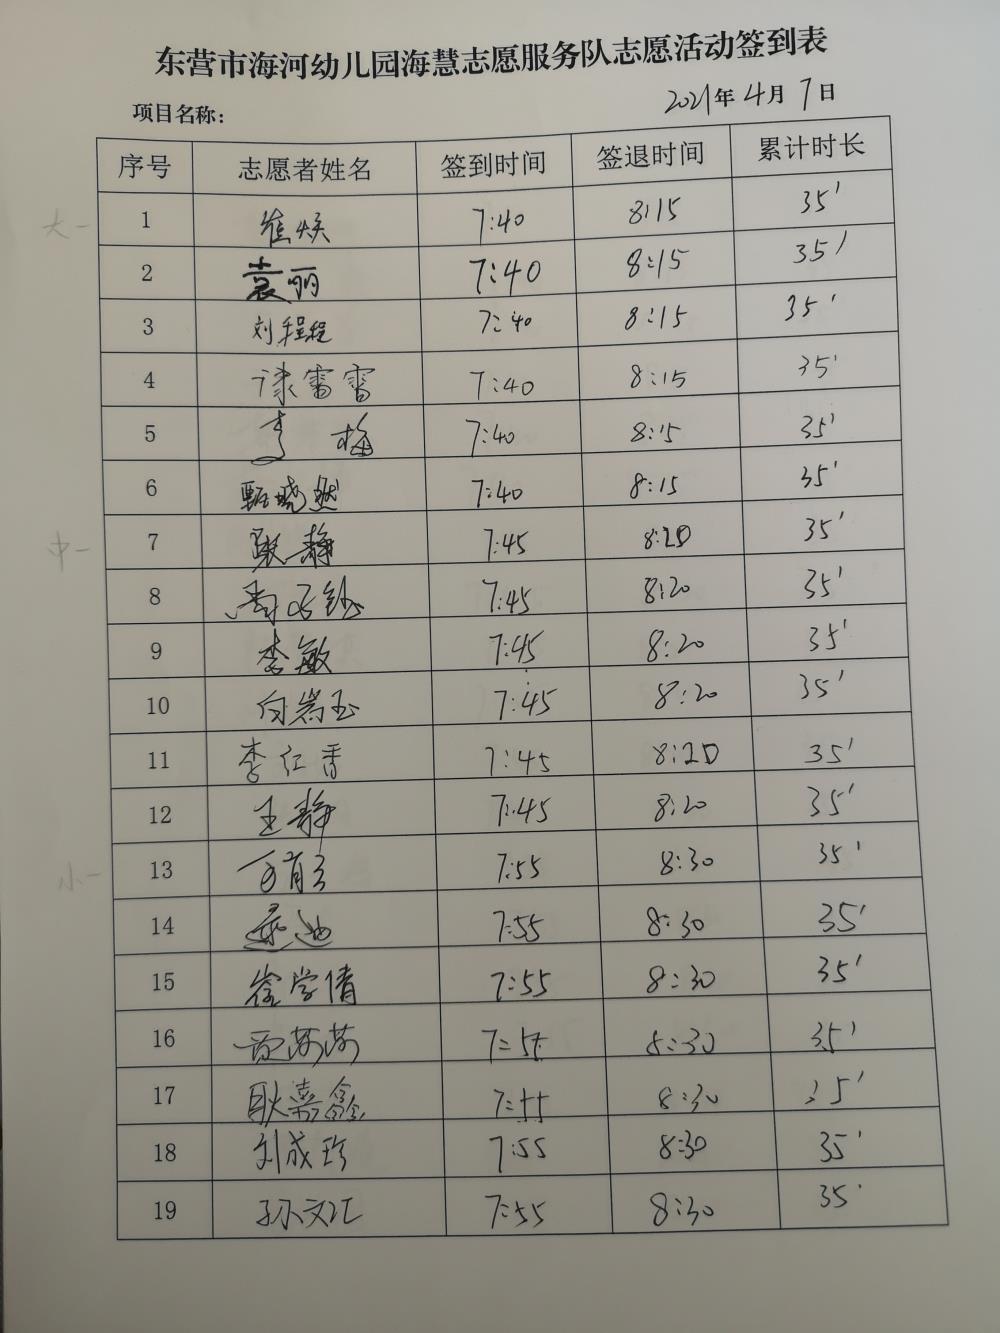 东营市海河幼儿园海慧志愿服务队志愿活动签到表
项目名称： 2021年4月7日
序号 志愿者姓名 签到时间 签退时间 累计时长
大一 1 崔焕 7:40 8:15 35'
2 袁丽 7:40 8:15 35'
3 刘程程 7:40 8:15 35'
4 谏雷雷 7:40 8:15 35'
5 李梅 7:40 8:15 35'
6 甄晓燃 7:40 8:15 35'
中一 7 耿静 7:45 8:20 35'
8 7:45 8:20 35'
9 李敏 7:45 8:20 35'
10 向嵩玉 7:45 8:20 35'
11 李红香 7:45 8:20 35'
12 王静 7:45 8:20 35'
小一 13 7:55 8:30 35'
14 桑迪 7:55 8:30 35'
15 崔学倩 7:55 8:30 35'
16 贾茜茜 7:55 8:30 35'
17 耿嘉鑫 7:55 8:30 35'
18 刘成珍 7:55 8:30 35'
19 孙文汇 7:55 8:30 35'